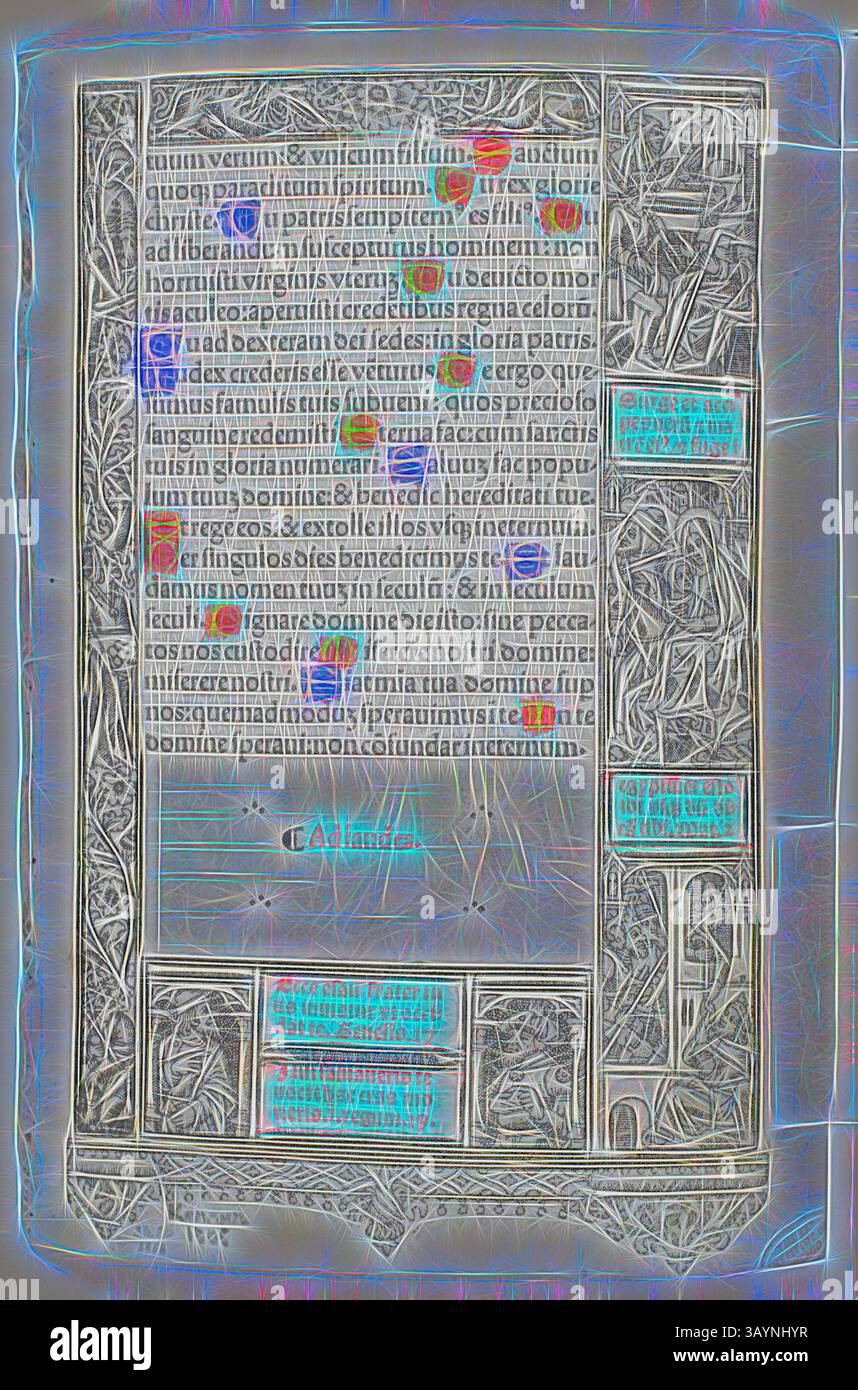 num verum: & vnicum filium. anctum
quoqꝫ paraclitum spiritum. u rex glorie
christe. u patris sempitern' es filiꝰ. u
ad liberandum suscepturus hominem: non
horruisti virginis vterūꝫ. u deuicto mor
tis aculeo: aperuisti credētibus regna celoꝝ.
u ad dexteram dei sedes: in gloria patris.
udex crederis esse venturus. e ergo que
sumus famulis tuis subueni: quos precioso
sanguine redemisti. terna fac: cum sanctis
tuis in gloria numerari. aluuꝫ fac popu
lum tuuꝫ domine: & benedic hereditati tue.
t rege eos: & extolle illos vsqꝫ in eternum.
er singulos dies benedicimus te. t lau
damus nomen tuuꝫ in seculū: & in seculum
seculi. ignare domine die isto: sine pecca
to nos custodire. iserere nostri domine:
miserere nostri. iat mīa tua domine sup
nos: quemadmoduꝫ sperauimus ī te. n te
domine speraui: non cōfundar in eternum.
Surge et acci
pe puerū ⁊ ma
trē eiꝰ ⁊ fuge
Ad laudes.
Ecce esau frater tu
Genesis.
nisi saluaueris te
nocte hac cras mo
rieris. i. regum. 19.
alamy
Image ID: 3AYNHYR
www.alamy.com